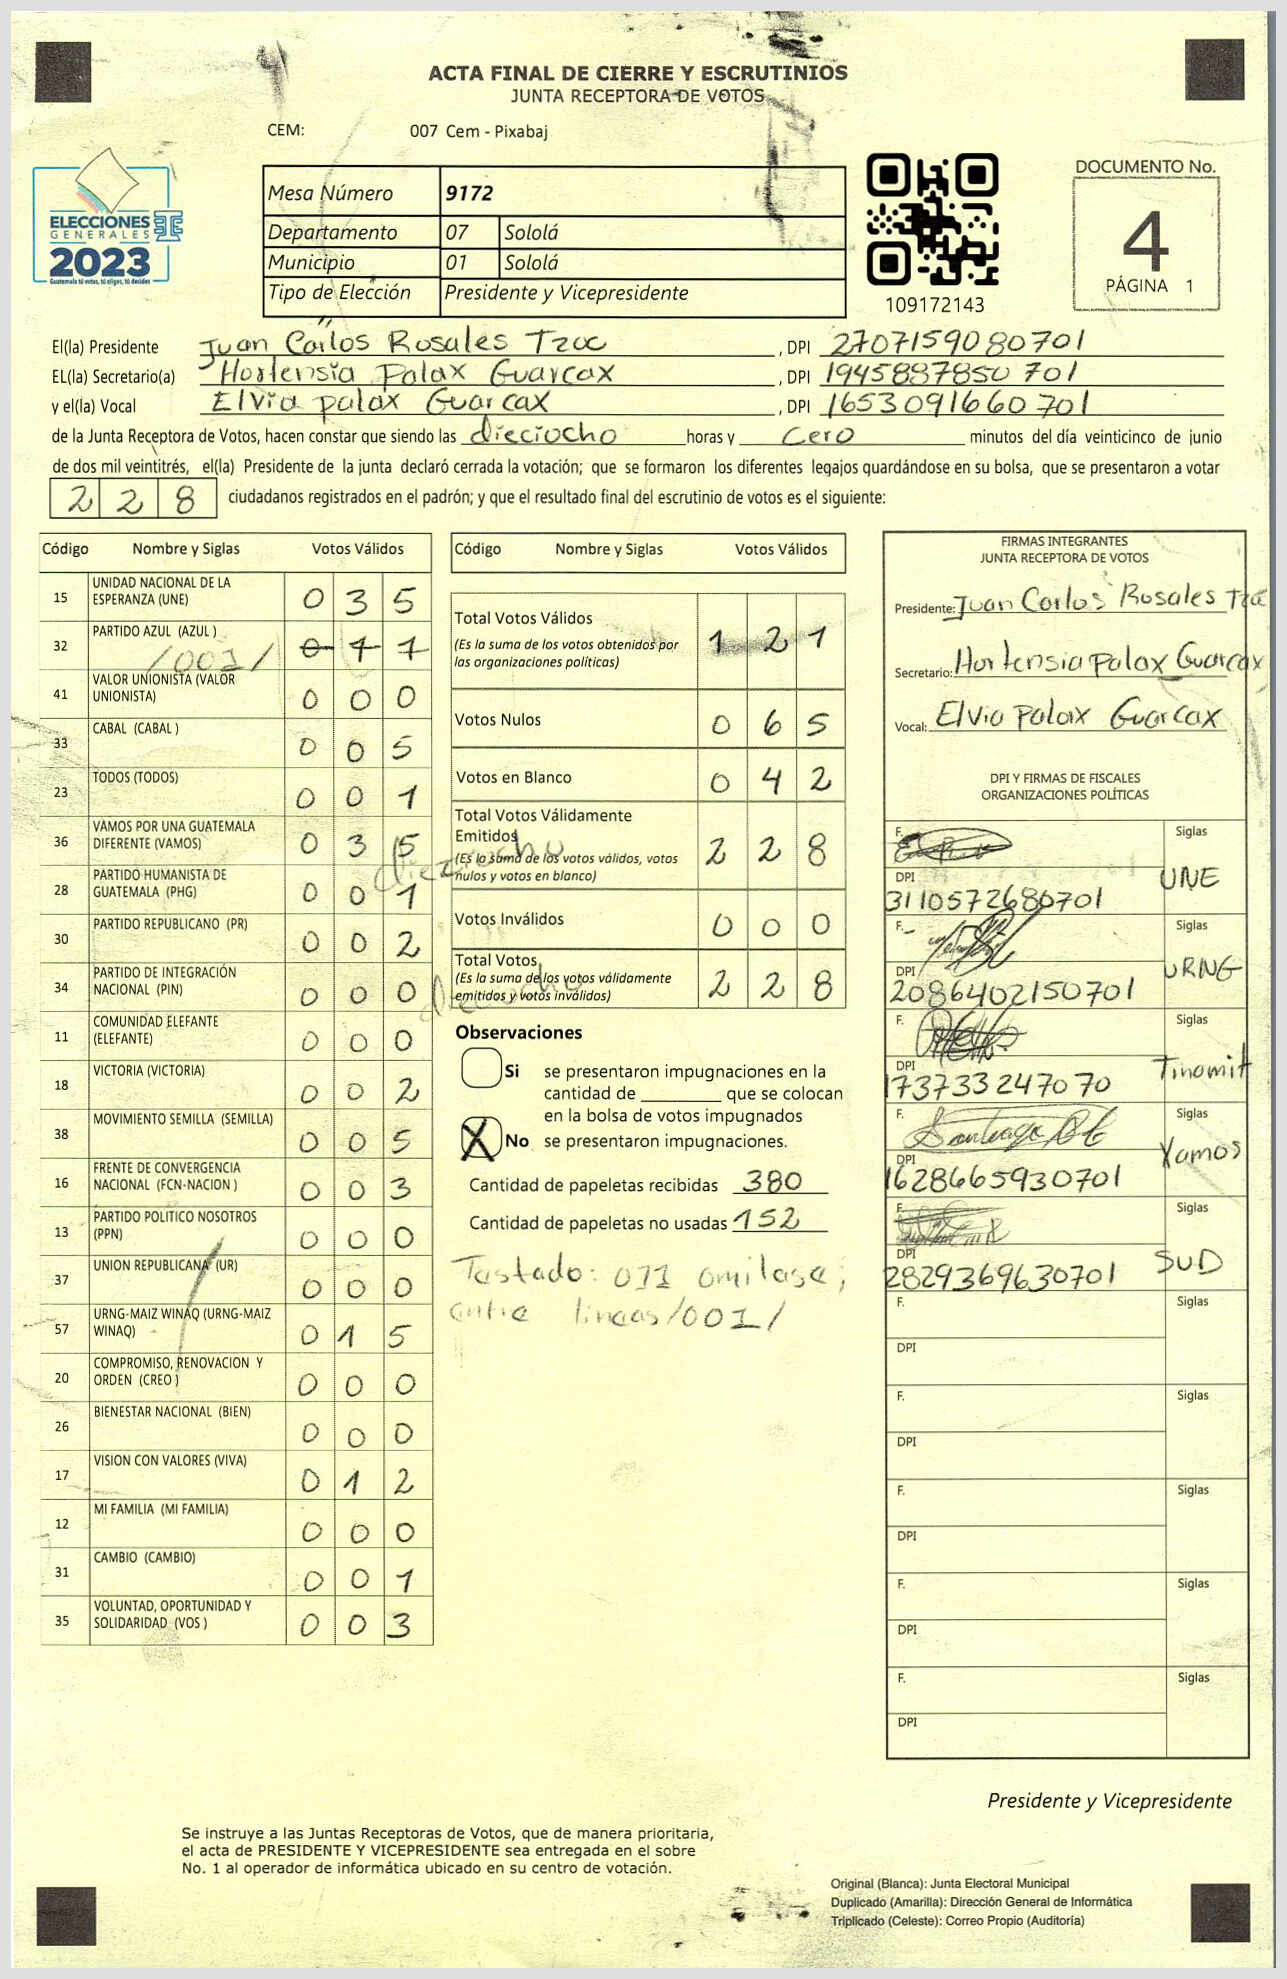 ACTA FINAL DE CIERRE Y ESCRUTINIOS
JUNTA RECEPTORA DE VOTOS
CEM: 007 Cem - Pixabaj
ELECCIONES
GENERALES
2023
Guatemala tú votas, tú eliges, tú decides
Mesa Número 9172
Departamento 07 Sololá
Municipio 01 Sololá
Tipo de Elección Presidente y Vicepresidente
109172143
DOCUMENTO No.
4
PÁGINA 1
El(la) Presidente Juan Carlos Rosales Tzoc , DPI 2707159080701
EL(la) Secretario(a) Hortensia Palax Guarcax , DPI 1945887850701
y el(la) Vocal Elvia palax Guarcax , DPI 1653091660701
de la Junta Receptora de Votos, hacen constar que siendo las dieciocho horas y cero minutos del día veinticinco de junio
de dos mil veintitrés, el(la) Presidente de la junta declaró cerrada la votación; que se formaron los diferentes legajos guardándose en su bolsa, que se presentaron a votar
228 ciudadanos registrados en el padrón; y que el resultado final del escrutinio de votos es el siguiente:
Código Nombre y Siglas Votos Válidos
15 UNIDAD NACIONAL DE LA ESPERANZA (UNE) 0 3 5
32 PARTIDO AZUL (AZUL ) /001/ 0 1 1
41 VALOR UNIONISTA (VALOR UNIONISTA) 0 0 0
33 CABAL (CABAL ) 0 0 5
23 TODOS (TODOS) 0 0 1
36 VAMOS POR UNA GUATEMALA DIFERENTE (VAMOS) 0 3 5
28 PARTIDO HUMANISTA DE GUATEMALA (PHG) 0 0 1
30 PARTIDO REPUBLICANO (PR) 0 0 2
34 PARTIDO DE INTEGRACIÓN NACIONAL (PIN) 0 0 0
11 COMUNIDAD ELEFANTE (ELEFANTE) 0 0 0
18 VICTORIA (VICTORIA) 0 0 2
38 MOVIMIENTO SEMILLA (SEMILLA) 0 0 5
16 FRENTE DE CONVERGENCIA NACIONAL (FCN-NACION ) 0 0 3
13 PARTIDO POLITICO NOSOTROS (PPN) 0 0 0
37 UNION REPUBLICANA (UR) 0 0 0
57 URNG-MAIZ WINAQ (URNG-MAIZ WINAQ) 0 1 5
20 COMPROMISO, RENOVACION Y ORDEN (CREO ) 0 0 0
26 BIENESTAR NACIONAL (BIEN) 0 0 0
17 VISION CON VALORES (VIVA) 0 1 2
12 MI FAMILIA (MI FAMILIA) 0 0 0
31 CAMBIO (CAMBIO) 0 0 1
35 VOLUNTAD, OPORTUNIDAD Y SOLIDARIDAD (VOS ) 0 0 3
Código Nombre y Siglas Votos Válidos
Total Votos Válidos 1 2 1
(Es la suma de los votos obtenidos por
las organizaciones políticas)
Votos Nulos 0 6 5
Votos en Blanco 0 4 2
Total Votos Válidamente
Emitidos 2 2 8
(Es la suma de los votos válidos, votos
nulos y votos en blanco)
dieciocho
Votos Inválidos 0 0 0
Total Votos 2 2 8
(Es la suma de los votos válidamente
emitidos y votos inválidos)
dieciocho
Observaciones
Si se presentaron impugnaciones en la
cantidad de que se colocan
en la bolsa de votos impugnados
X No se presentaron impugnaciones.
Cantidad de papeletas recibidas 380
Cantidad de papeletas no usadas 152
Tastado: 011 omilase;
entre lineas/001/
FIRMAS INTEGRANTES
JUNTA RECEPTORA DE VOTOS
Presidente: Juan Carlos Rosales Tzoc
Secretario: Hortensia palax Guarcax
Vocal: Elvia Palax Guarcax
DPI Y FIRMAS DE FISCALES
ORGANIZACIONES POLÍTICAS
F. Siglas
DPI UNE
3110572680701
F. Siglas
DPI URNG
2086402150701
F. Siglas
DPI Tinamit
173733247070
F. Santiago Siglas
DPI Vamos
1628665930701
F. Siglas
DPI SUD
2829369630701
F. Siglas
DPI
F. Siglas
DPI
F. Siglas
DPI
F. Siglas
DPI
F. Siglas
DPI
Presidente y Vicepresidente
Se instruye a las Juntas Receptoras de Votos, que de manera prioritaria,
el acta de PRESIDENTE Y VICEPRESIDENTE sea entregada en el sobre
No. 1 al operador de informática ubicado en su centro de votación.
Original (Blanca): Junta Electoral Municipal
Duplicado (Amarilla): Dirección General de Informática
Triplicado (Celeste): Correo Propio (Auditoría)